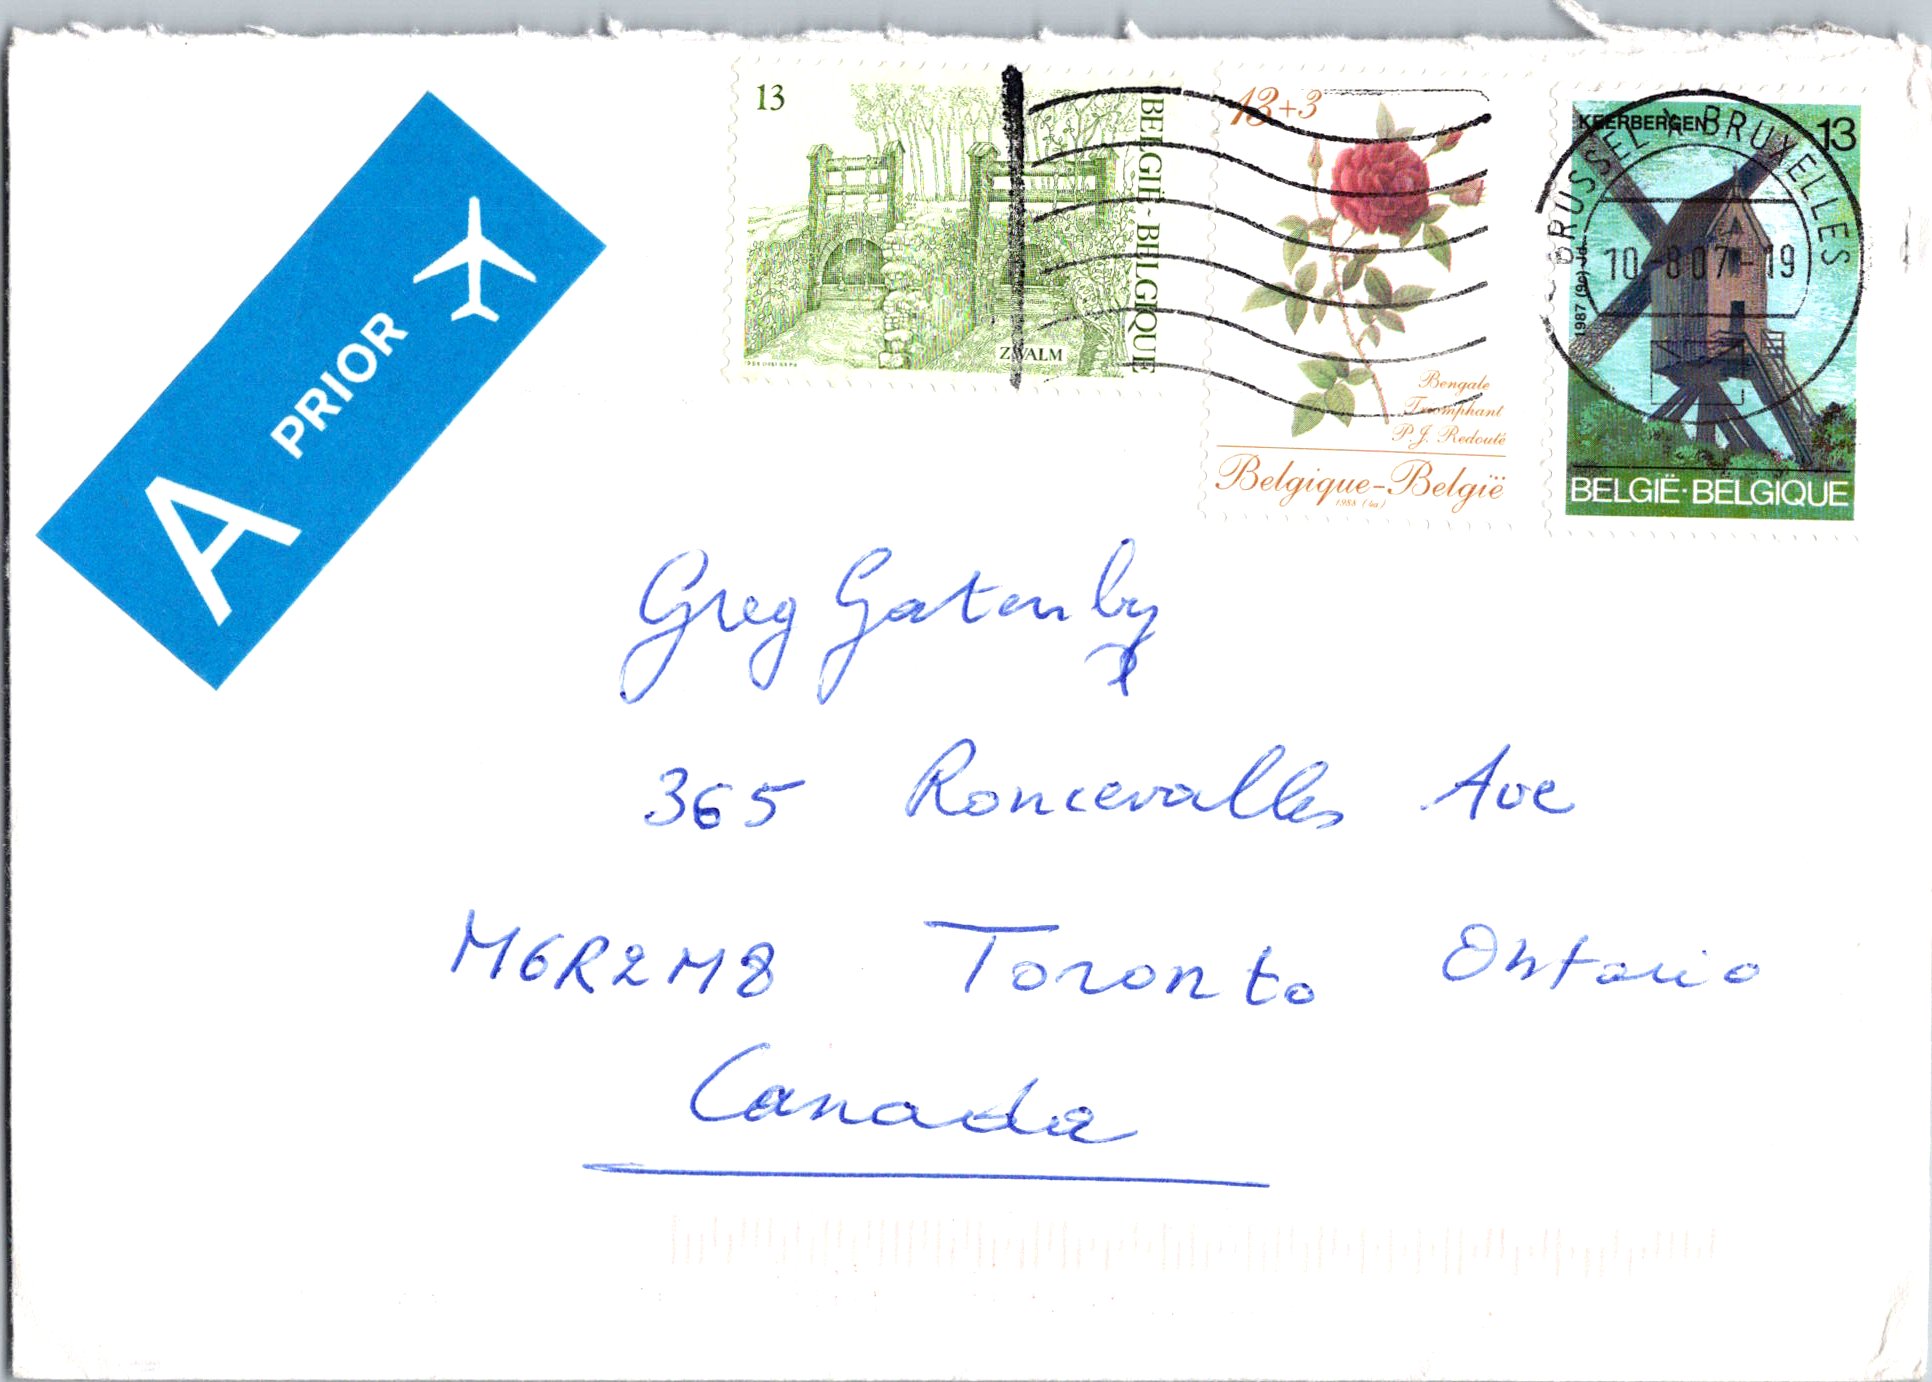 A PRIOR
13
BELGIË-BELGIQUE
ZWALM
13+3
Bengale
Triomphant
P.J. Redouté
Belgique-België
1988 (4a)
KEERBERGEN
13
1987 (9a)
BELGIË·BELGIQUE
BRUSSEL X BRUXELLES
10-807-19
Greg Gatenby
365 Roncevalles Ave
M6R2M8 Toronto Ontario
Canada